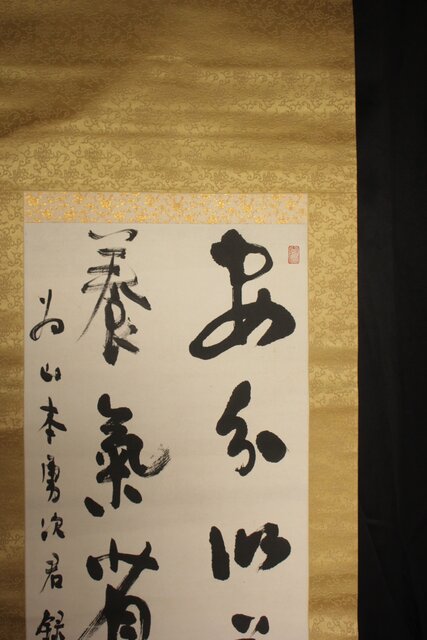 安分以
養氣省
為山本勇次君録